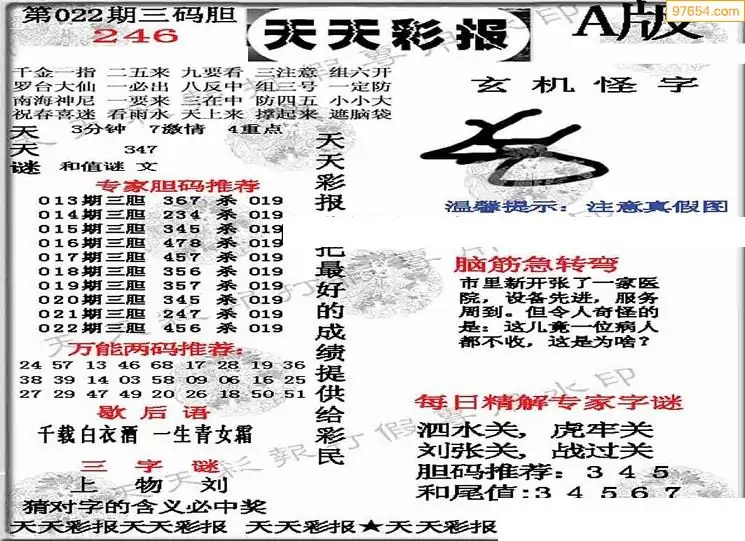 第022期三码胆
246
天天彩报
A版
97654.com
千金一指 二五来 九要看 三注意 组六开
罗台大仙 一必出 八反中 组三号 一定防
南海神尼 一要来 三在中 防四五 小小大
祝春喜迷 看雨水 天上来 撑起来 遮脑袋
天 3分钟 7激情 4重点
天 347
谜 和值谜 文
专家胆码推荐
013期三胆 367 杀 019
014期三胆 234 杀 019
015期三胆 345 杀 019
016期三胆 478 杀 019
017期三胆 457 杀 019
018期三胆 356 杀 019
019期三胆 357 杀 019
020期三胆 345 杀 019
021期三胆 247 杀 019
022期三胆 456 杀 019
万能两码推荐:
24 57 13 46 68 17 28 19 36
38 39 14 03 58 09 06 16 25
27 29 47 49 20 26 18 50 51
歇后语
千载白衣酒 一生青女霜
三字谜
上 物 刘
猜对字的含义必中奖
天天彩报
把最好的成绩提供给彩民
玄机怪字
温馨提示: 注意真假图
脑筋急转弯
市里新开张了一家医
院,设备先进,服务
周到。但令人奇怪的
是:这儿竟一位病人
都不收,这是为啥?
每日精解专家字谜
泗水关,虎牢关
刘张关,战过关
胆码推荐:3 4 5
和尾值:3 4 5 6 7
天天彩报天天彩报 天天彩报★天天彩报